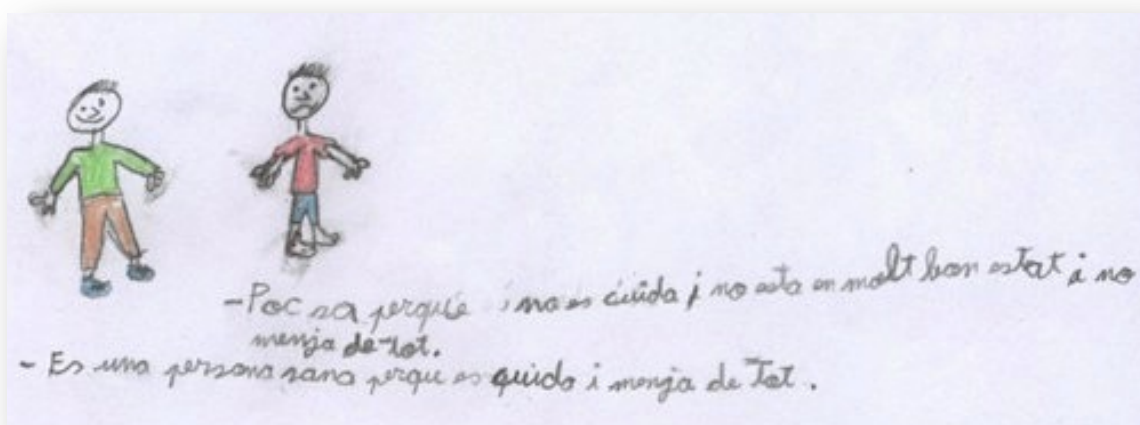 -Poc sa perquè i no es cuida i no esta en molt bon estat i no
menja de tot.
- Es una persona sana perqu es quida i menja de Tot.